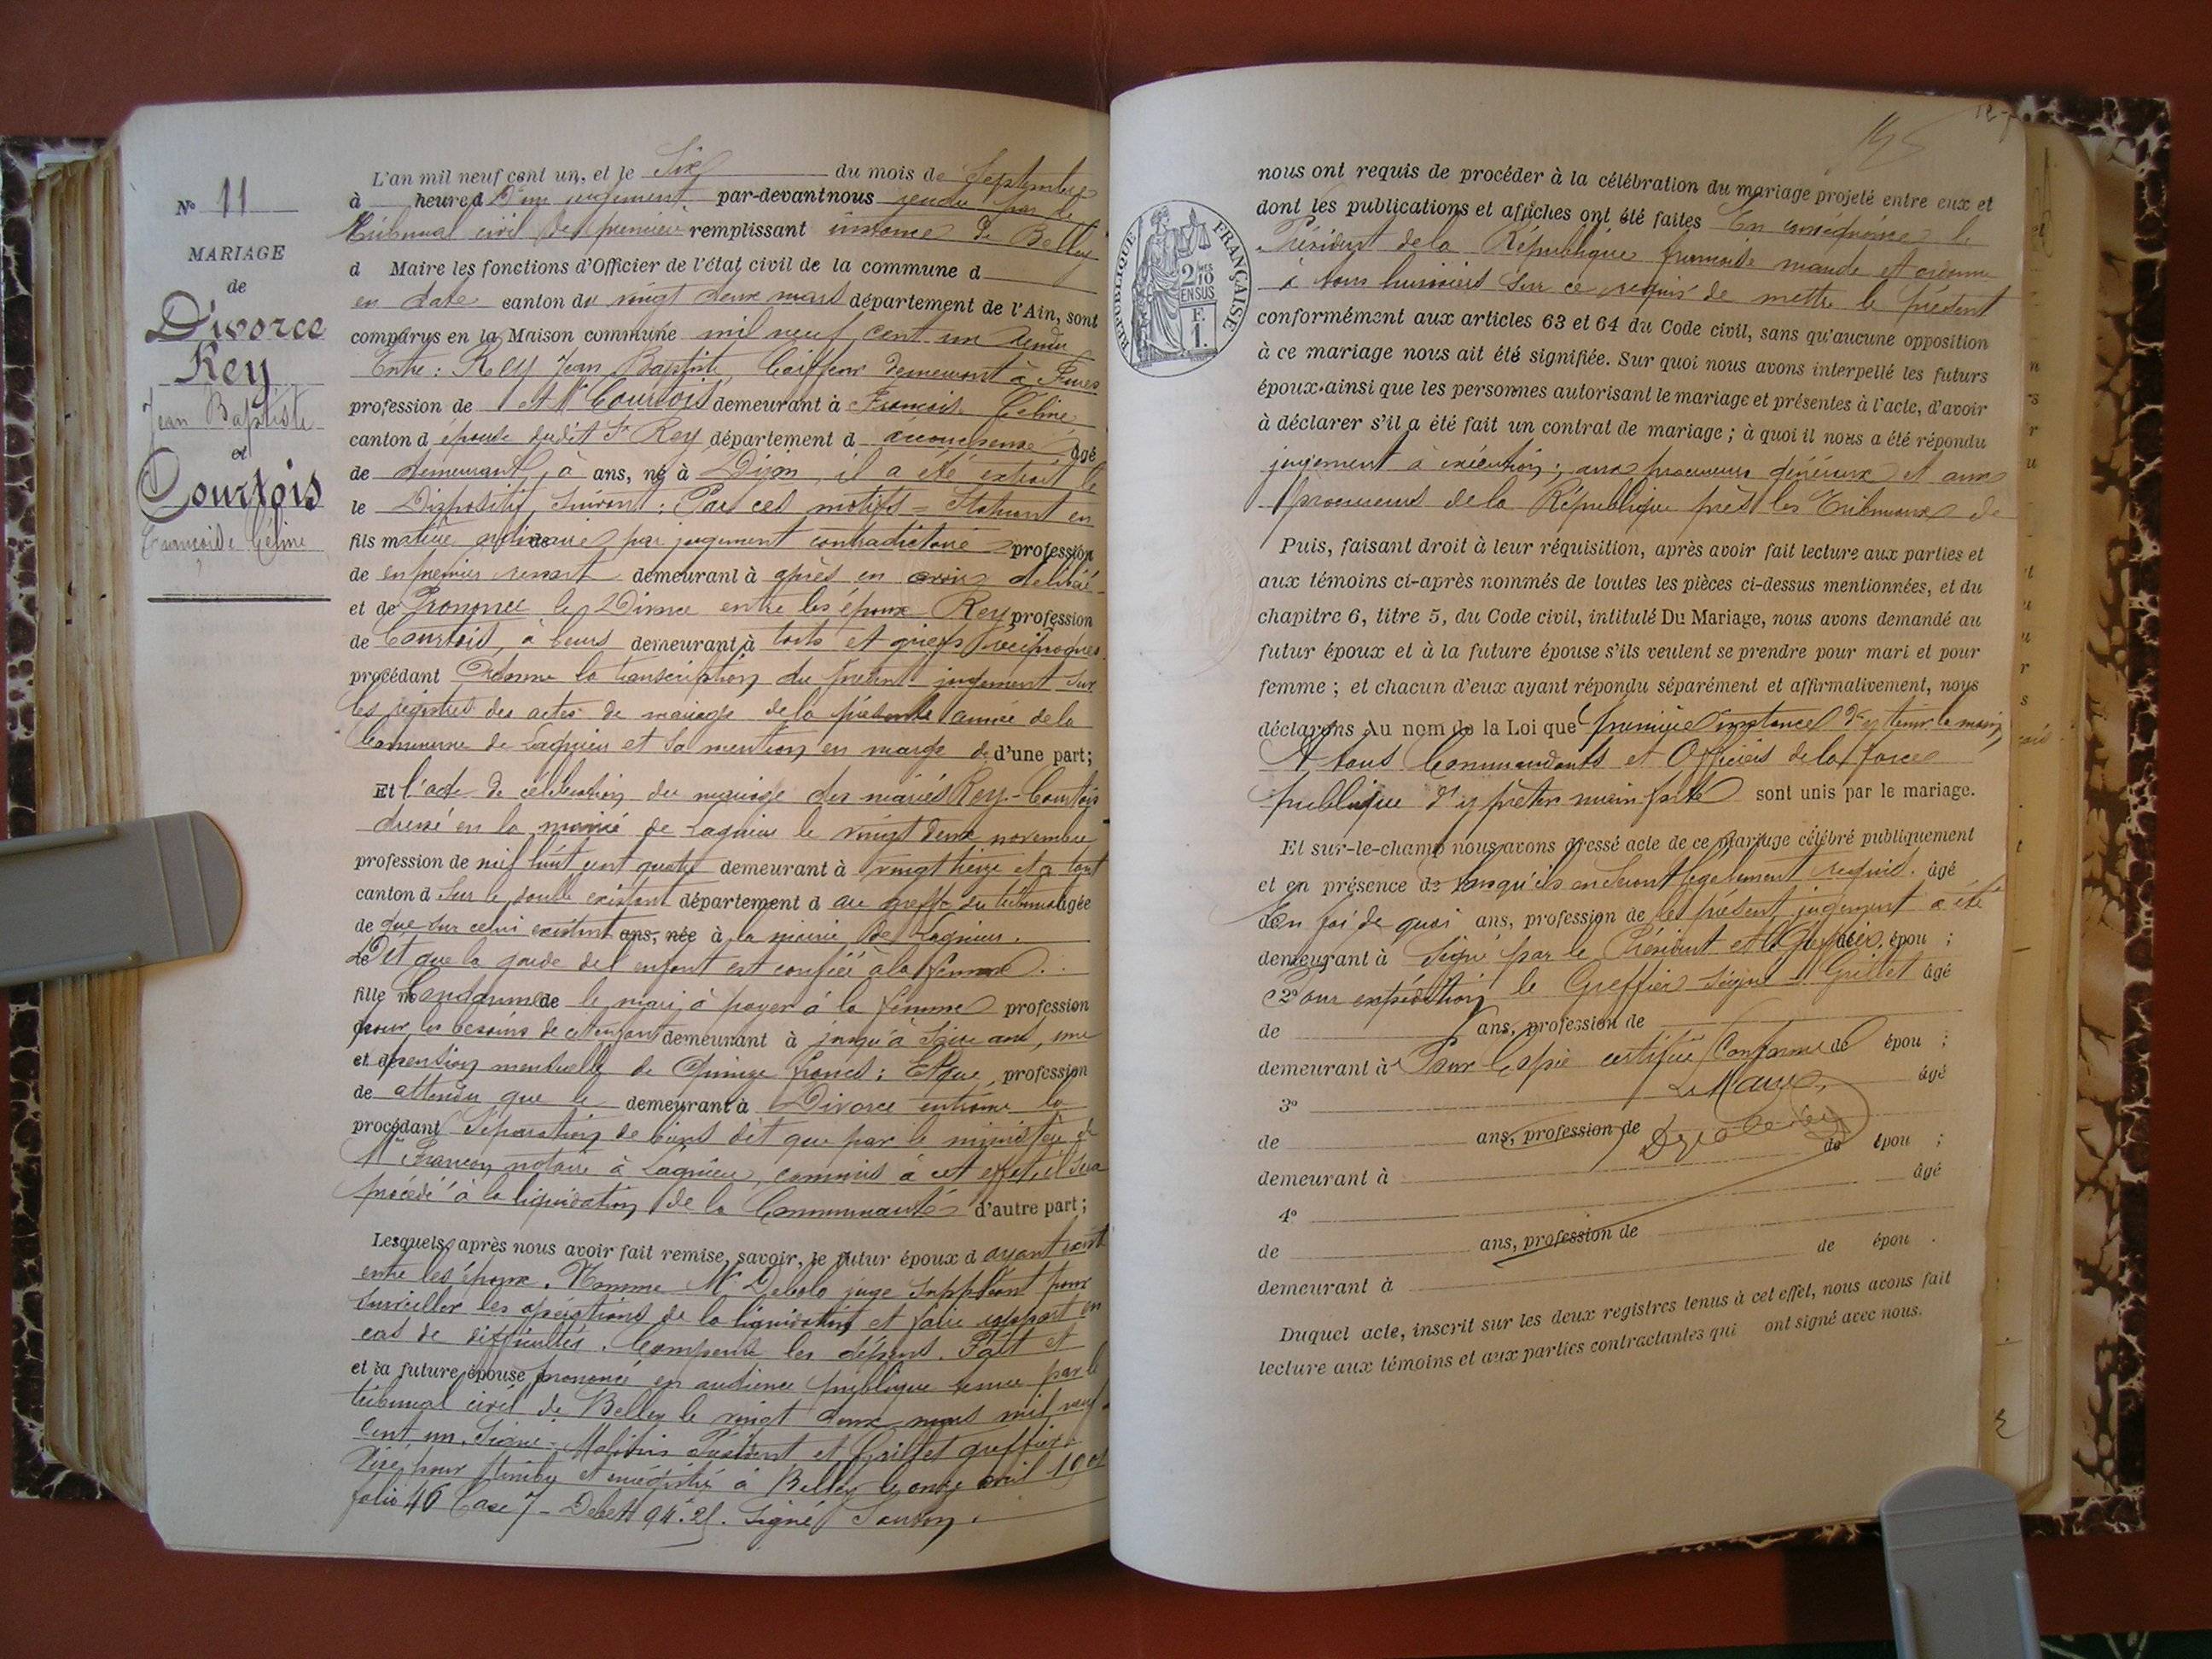 N° 11
MARIAGE
de
Divorce
Rey
Jean Baptiste
et
Courtois
Françoise Céline
L'an mil neuf cent un, et le Six du mois de Septembre
à heure d D'un jugement par-devant nous rendu par le
Tribunal civil de première remplissant instance de Belley
d Maire les fonctions d'Officier de l'état civil de la commune d
en date canton du vingt deux mars département de l'Ain, sont
comparus en la Maison commune mil neuf cent un rendu
Entre : Rey Jean Baptiste, Coiffeur demeurant à
profession de et Courtois demeurant à Françoise Céline
canton d épouse dudit Sr Rey département d accoucheuse âgé
de demeurant à ans, né à Dijon, il a été extrait le
le Dispositif suivant : Par ces motifs = Statuant en
fils matière ordinaire de par jugement contradictoire profession
de en premier ressort demeurant à après en avoir délibéré
et de Prononce le Divorce entre les époux Rey profession
de Courtois, à leurs demeurant à torts et griefs réciproques
procédant Ordonne la transcription du présent jugement sur
les registres des actes de mariage de la présente année de la
Commune de Lagnieu et sa mention en marge de d'une part;
Et l'acte de célébration du mariage des mariés Rey-Courtois
dressé en la mairie de Lagnieu le vingt deux novembre
profession de mil huit cent quatre demeurant à vingt treize et à tant
canton d sur le double existant département d au greffe du tribunal âgée
de que sur celui existant ans, née à la mairie de Lagnieu.
le Dit que la garde de l'enfant est confiée à la femme.
fille Condamne de le mari à payer à la femme profession
pour les besoins de cet enfant demeurant à jusqu'à seize ans, une
et pension mensuelle de Quinze francs ; Et que profession
de attendu que le demeurant à Divorce entraîne la
procédant Séparation de biens dit que par le ministère de
Me Françon notaire à Lagnieu, commis à cet effet, il sera
procédé à la liquidation de la Communauté d'autre part;
Lesquels après nous avoir fait remise, savoir, le futur époux d ayant existé
entre les époux. Nomme Mr juge suppléant pour
surveiller les opérations de la liquidation et faire rapport en
cas de difficultés. Compense les dépens. Fait et
et la future épouse prononcé en audience publique tenue par le
tribunal civil de Belley le vingt deux mars mil neuf
cent un. Signé : Président et Grillet greffier.
Visé pour timbre et enregistré à Belley le onze avril 1901
folio 46 Case 7 - Signé
nous ont requis de procéder à la célébration du mariage projeté entre eux et
dont les publications et affiches ont été faites En conséquence le
Président de la République française mande et ordonne
à tous huissiers sur ce requis de mettre le présent
conformément aux articles 63 et 64 du Code civil, sans qu'aucune opposition
à ce mariage nous ait été signifiée. Sur quoi nous avons interpellé les futurs
époux ainsi que les personnes autorisant le mariage et présentes à l'acte, d'avoir
à déclarer s'il a été fait un contrat de mariage ; à quoi il nous a été répondu
jugement à exécution ; aux procureurs généraux et aux
procureurs de la République près les Tribunaux de
Puis, faisant droit à leur réquisition, après avoir fait lecture aux parties et
aux témoins ci-après nommés de toutes les pièces ci-dessus mentionnées, et du
chapitre 6, titre 5, du Code civil, intitulé Du Mariage, nous avons demandé au
futur époux et à la future épouse s'ils veulent se prendre pour mari et pour
femme ; et chacun d'eux ayant répondu séparément et affirmativement, nous
déclarons Au nom de la Loi que première instance d'y tenir la main
A tous Commandants et Officiers de la force
publique d'y prêter main forte sont unis par le mariage.
Et sur-le-champ nous avons dressé acte de ce mariage célébré publiquement
et en présence de lorsqu'ils en seront légalement requis. âgé
de En foi de quoi ans, profession de le présent jugement a été
demeurant à Signé par le Président et le Greffier. de épou ;
2° Pour expédition le Greffier signé Grillet âgé
de ans, profession de
demeurant à Pour Copie certifiée Conforme de épou ;
Le Maire, âgé
3°
de ans, profession de
de épou ;
demeurant à
âgé
4°
de ans, profession de
de épou .
demeurant à
Duquel acte, inscrit sur les deux registres tenus à cet effet, nous avons fait
lecture aux témoins et aux parties contractantes qui ont signé avec nous.
RÉPUBLIQUE FRANÇAISE
2/10 EN SUS
F.
1.